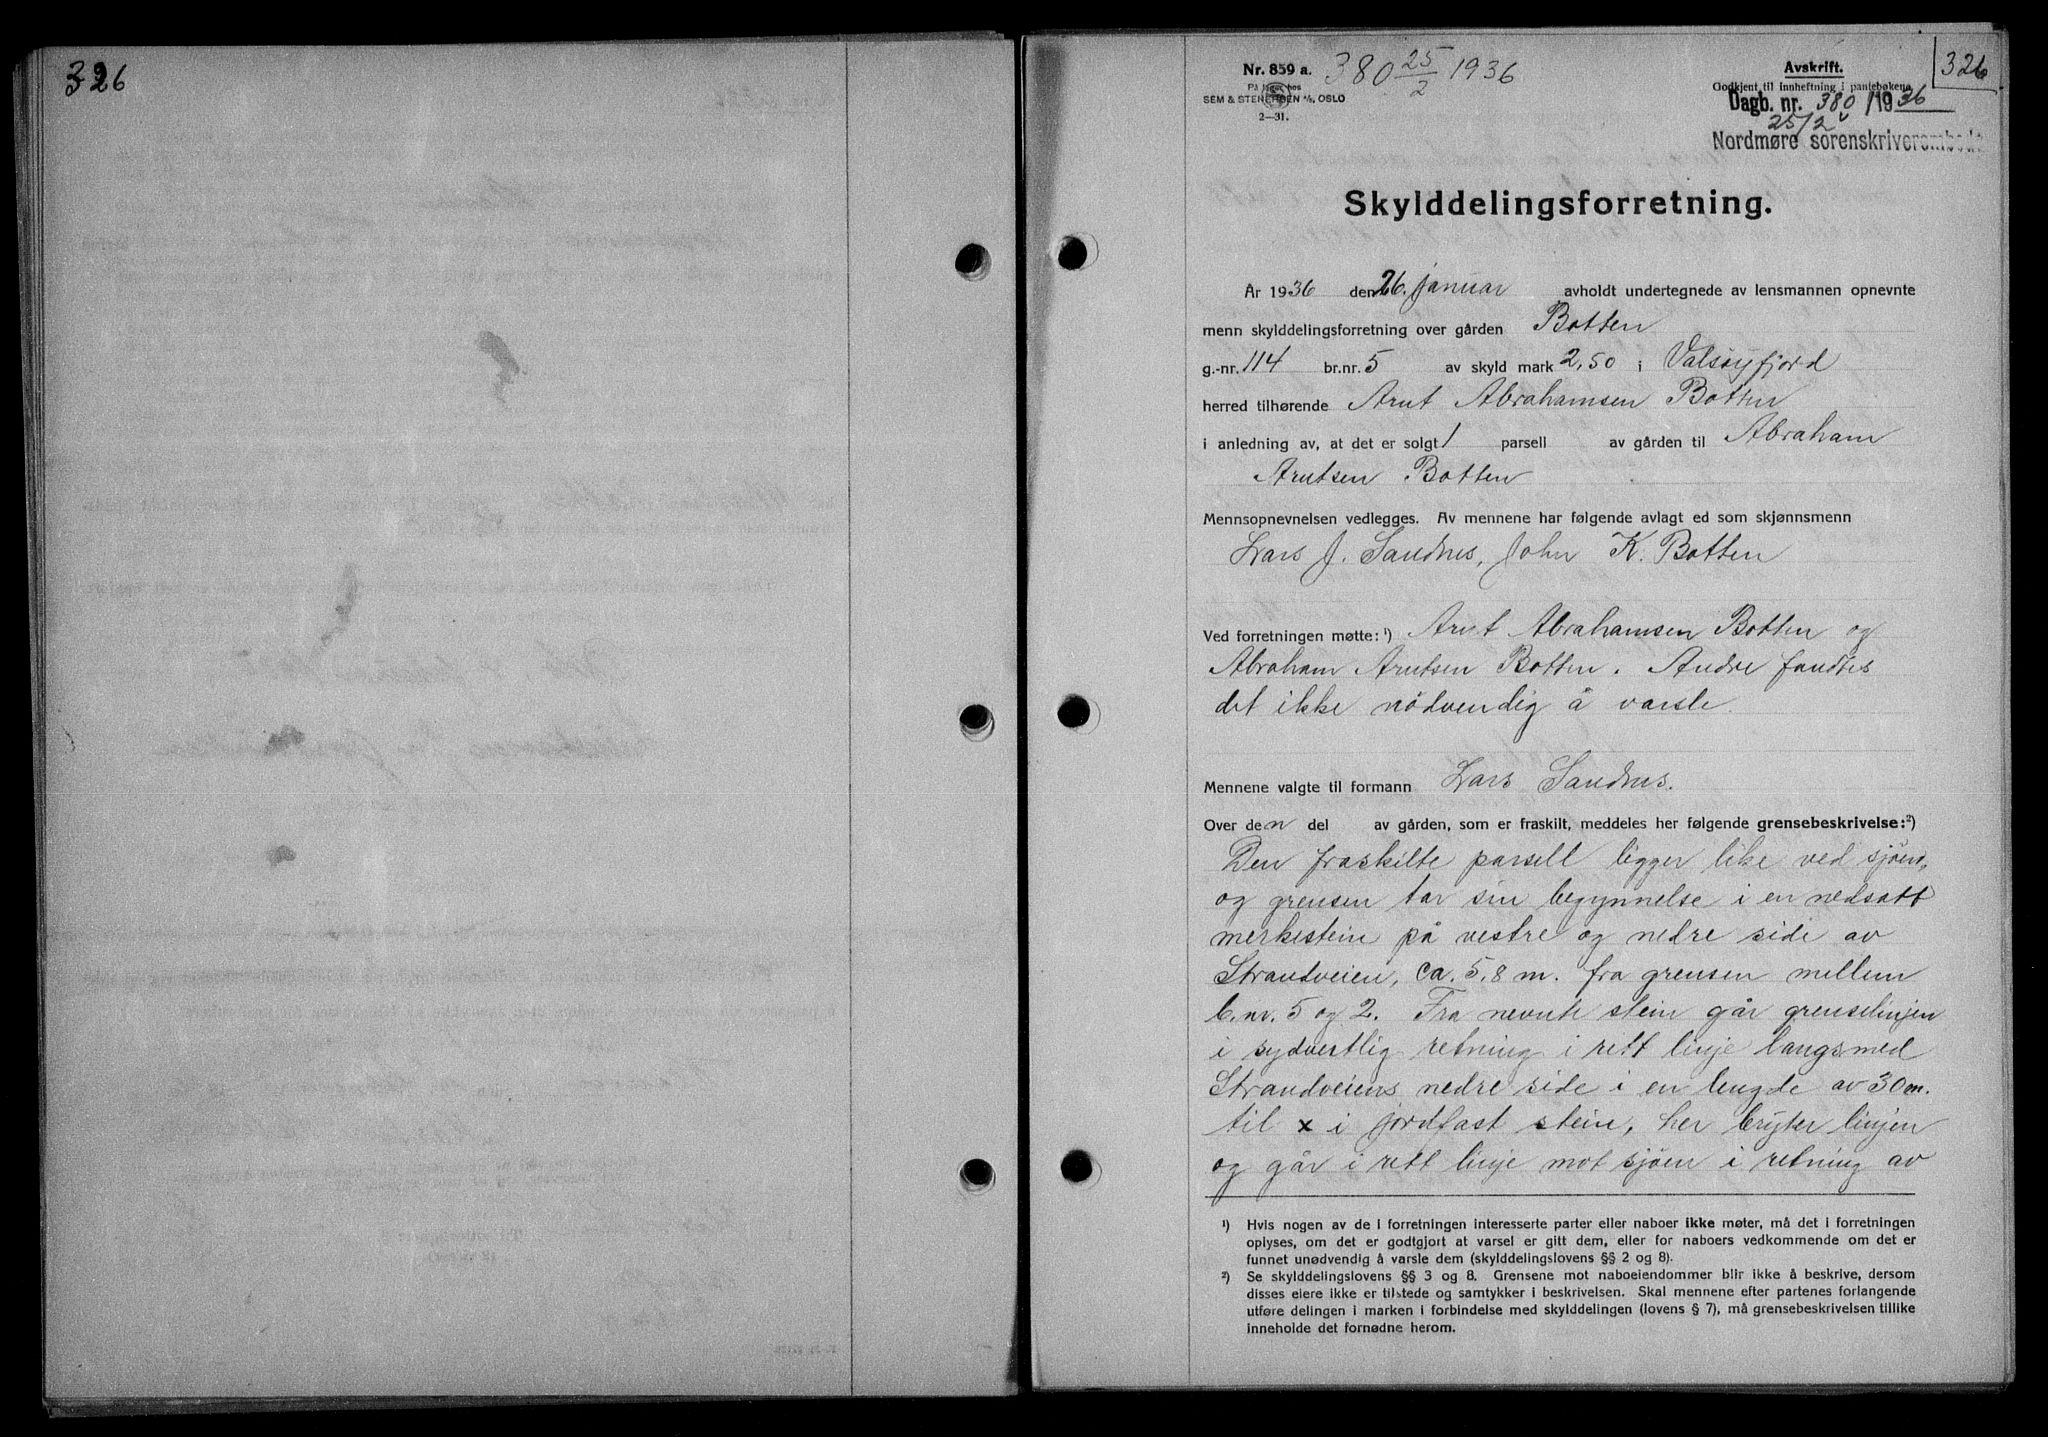 326
Nr. 859 a.
På lager hos
SEM & STENERSEN A/S, OSLO
2—31.
380 25/2 1936
Avskrift.
Godkjent til innheftning i pantebøkene
326
Dagb. nr. 380 / 1936
25/2
Nordmøre sorenskriverembede
Skylddelingsforretning.
År 1936 den 26. januar avholdt undertegnede av lensmannen opnevnte
menn skylddelingsforretning over gården Botten
g.-nr. 114 br.nr. 5 av skyld mark 2,50 i Valsøyfjord
herred tilhørende Arnt Abrahamsen Botten
i anledning av, at det er solgt 1 parsell av gården til Abraham
Arntsen Botten
Mennsopnevnelsen vedlegges. Av mennene har følgende avlagt ed som skjønnsmenn
Lars J. Sandnes, John K. Botten
Ved forretningen møtte: ¹) Arnt Abrahamsen Botten og
Abraham Arntsen Botten. Andre fandtes
det ikke nödvendig å varsle.
Mennene valgte til formann Lars Sandnes.
Over den del av gården, som er fraskilt, meddeles her følgende grensebeskrivelse: ²)
Den fraskilte parsell ligger like ved sjöen,
og grensen tar sin begynnelse i en nedsatt
merkestein på vestre og nedre side av
Strandveien, ca. 5,8 m. fra grensen mellem
b.nr. 5 og 2. Fra nevnte stein går grenselinjen
i sydvestlig retning i rett linje langsmed
Strandveiens nedre side i en lengde av 30 m.
til x i jordfast stein, her bryter linjen
og går i rett linje mot sjöen i retning av
¹) Hvis nogen av de i forretningen interesserte parter eller naboer ikke møter, må det i forretningen
oplyses, om det er godtgjort at varsel er gitt dem, eller for naboers vedkommende om det er
funnet unødvendig å varsle dem (skylddelingslovens §§ 2 og 8).
²) Se skylddelingslovens §§ 3 og 8. Grensene mot naboeiendommer blir ikke å beskrive, dersom
disses eiere ikke er tilstede og samtykker i beskrivelsen. Skal mennene efter partenes forlangende
utføre delingen i marken i forbindelse med skylddelingen (lovens § 7), må grensebeskrivelsen tillike
inneholde det fornødne herom.